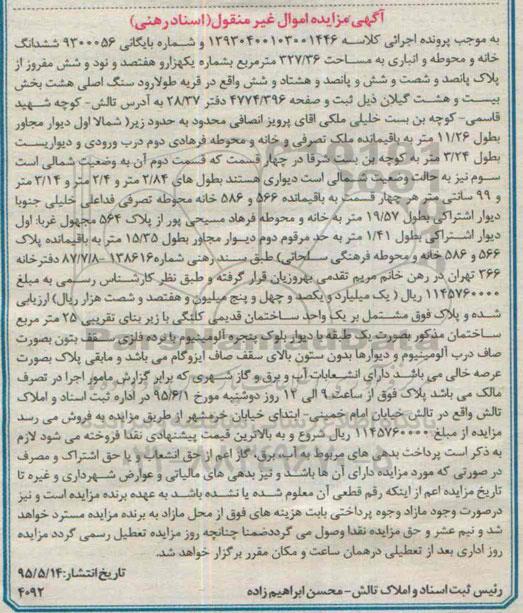 آگهی مزایده اموال غیر منقول(اسناد رهنی)
به موجب پرونده اجرائی کلاسه ۱۳۹۳۰۴۰۰۱۰۳۰۰۱۴۴۶ و شماره بایگانی ۹۳۰۰۰۵۶ ششدانگ
خانه و محوطه و انباری به مساحت ۳۲۷/۳۶ مترمربع بشماره یکهزارو هفتصد و نود و شش مفروز از
پلاک پانصد و شصت و شش و پانصد و هشتاد و شش واقع در قریه طولارود سنگ اصلی هشت بخش
بیست و هشت گیلان ذیل ثبت و صفحه ۴۷۷۴/۳۹۶ دفتر ۲۸/۳۷ به آدرس تالش- کوچه شهید
قاسمی- کوچه بن بست خلیلی ملکی اقای پرویز انصافی محدود به حدود زیر( شمالا اول دیوار مجاور
بطول ۱۱/۲۶ متر به باقیمانده ملک تصرفی و خانه و محوطه فرهادی دوم درب ورودی و دیواریست
بطول ۳/۲۴ متر به کوچه بن بست شرقا در چهار قسمت که قسمت دوم آن به وضعیت شمالی است
سوم نیز به حالت وضعیت شمالی است دیواری هستند بطول های ۲/۸۴ متر و ۲/۴ متر و ۳/۱۴ متر
و ۹۹ سانتی متر هر چهار قسمت به باقیمانده ۵۶۶ و ۵۸۶ خانه محوطه تصرفی فداعلی خلیلی جنوبا
دیوار اشتراکی بطول ۱۹/۵۷ متر به خانه و محوطه فرهاد مسیحی پور از پلاک ۵۶۴ مجهول غربا: اول
دیوار اشتراکی بطول ۱/۴۱ متر به حد مرقوم دوم دیوار مجاور بطول ۱۵/۳۵ متر به باقیمانده پلاک
۵۶۶ و ۵۸۶ خانه و محوطه فرهنگی سلحاتی) طبق سند رهنی شماره ۱۳۸۶۱۶- ۸۷/۷/۸ دفترخانه
۳۶۶ تهران در رهن خانم مریم تقدمی بهروزیان قرار گرفته و طبق نظر کارشناس رسمی به مبلغ
۱۱۴۵۷۶۰۰۰۰ ریال ( یک میلیارد و یکصد و چهل و پنج میلیون و هفتصد و شصت هزار ریال) ارزیابی
شده و پلاک فوق مشتمل بر یک واحد ساختمان قدیمی کلنگی با زیر بنای تقریبی ۲۵ متر مربع
ساختمان مذکور بصورت یک طبقه با دیوار بلوک پنجره آلومینیوم با نرده فلزی سقف بتون بصورت
صاف درب آلومینیوم و دیوارها بدون ستون بالای سقف صاف ایزوگام می باشد و مابقی پلاک بصورت
عرصه خالی می باشد دارای انشعابات آب و برق و گاز شهری که برابر گزارش مامور اجرا در تصرف
مالک می باشد پلاک فوق از ساعت ۹ الی ۱۲ روز دوشنبه مورخ ۹۵/۶/۱ در اداره ثبت اسناد و املاک
تالش واقع در تالش خیابان امام خمینی- ابتدای خیابان خرمشهر از طریق مزایده به فروش می رسد
مزایده از مبلغ ۱۱۴۵۷۶۰۰۰۰ ریال شروع و به بالاترین قیمت پیشنهادی نقدا فروخته می شود لازم
به ذکر است پرداخت بدهی های مربوط به آب، برق، گاز اعم از حق انشعاب و یا حق اشتراک و مصرف
در صورتی که مورد مزایده دارای آن ها باشد و نیز بدهی های مالیاتی و عوارض شهرداری و غیره تا
تاریخ مزایده اعم از اینکه رقم قطعی آن معلوم شده یا نشده باشد به عهده برنده مزایده است و نیز
درصورت وجود مازاد وجوه پرداختی بابت هزینه های فوق از محل مازاد به برنده مزایده مسترد خواهد
شد و نیم عشر و حق مزایده نقدا وصول می گرددضمنا چنانچه روز مزایده تعطیل رسمی گردد مزایده
روز اداری بعد از تعطیلی درهمان ساعت و مکان مقرر برگزار خواهد شد.
تاریخ انتشار: ۹۵/۵/۱۴
رئیس ثبت اسناد و املاک تالش- محسن ابراهیم زاده
۴۰۹۲